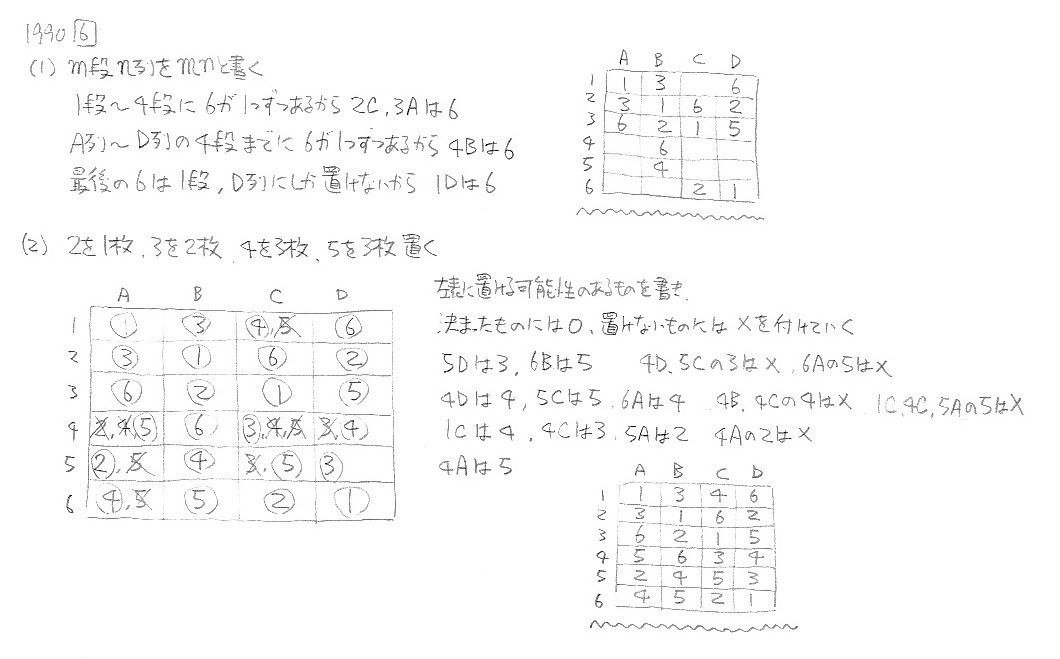 1990 6
(1) m段n列をmnと書く
1段~4段に6が1つずつあるから 2C, 3Aは6
A列~D列の4段までに6が1つずつあるから 4Bは6
最後の6は1段, D列にしか置けないから 1Dは6
A B C D
1 1 3 6
2 3 1 6 2
3 6 2 1 5
4 6
5 4
6 2 1
(2) 2を1枚、3を2枚、4を3枚、5を3枚置く
A B C D
1 1 3 4,5 6
2 3 1 6 2
3 6 2 1 5
4 2,4,5 6 3,4,5 3,4
5 2,5 4 3,5 3
6 4,5 5 2 1
左表に置ける可能性のあるものを書き、
決まったものには○、置けないものには×を付けていく
5Dは3, 6Bは5 4D, 5Cの3は×, 6Aの5は×
4Dは4, 5Cは5, 6Aは4 4B, 4Cの4は×, 1C, 4C, 5Aの5は×
1Cは4, 4Cは3, 5Aは2 4Aの2は×
4Aは5
A B C D
1 1 3 4 6
2 3 1 6 2
3 6 2 1 5
4 5 6 3 4
5 2 4 5 3
6 4 5 2 1